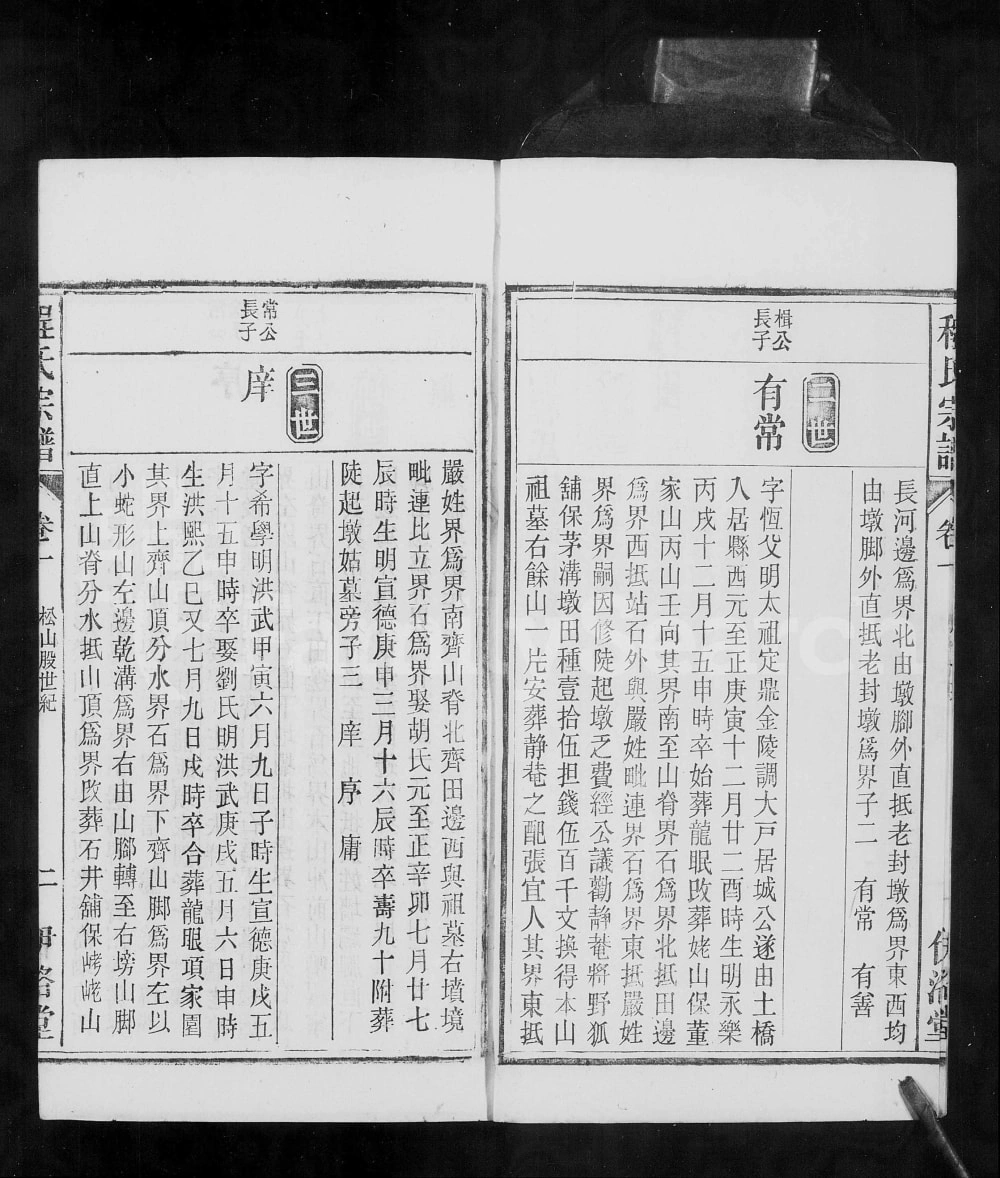 長河邊爲界北由墩腳外直抵老封墩爲界東西均
由墩脚外直抵老封墩爲界子二 有常 有善
二世
楫公
長子
有常
字恆父明太祖定鼎金陵調大戸居城公遂由土橋
入居縣西元至正庚寅十二月廿二酉時生明永樂
丙戌十二月十五申時卒始葬龍眠改葬姥山保董
家山丙山壬向其界南至山脊界石爲界北抵田邊
爲界西抵站石外與嚴姓毗連界石爲界東抵嚴姓
界爲界嗣因修陡起墩乏費經公議勸静菴將野狐
舖保茅溝墩田種壹拾伍担錢伍百千文換得本山
祖墓右餘山一片安葬静菴之配張宜人其界東抵
嚴姓界爲界南齊山脊北齊田邊西與祖墓右墳境
毗連比立界石爲界娶胡氏元至正辛卯七月廿七
辰時生明宣德庚申三月十六辰時卒壽九十附葬
陡起墩姑墓旁子三 庠 序 庸
三世
常公
長子
庠
字希學明洪武甲寅六月九日子時生宣德庚戌五
月十五申時卒娶劉氏明洪武庚戌五月六日申時
生洪熙乙巳又七月九日戌時卒合葬龍眼項家圍
其界上齊山頂分水界石爲界下齊山脚爲界左以
小蛇形山左邊乾溝爲界右由山腳轉至右塝山脚
直上山脊分水抵山頂爲界改葬石井舖保峔峔山
程氏宗譜
卷一
松山股世紀
二
伊洛堂